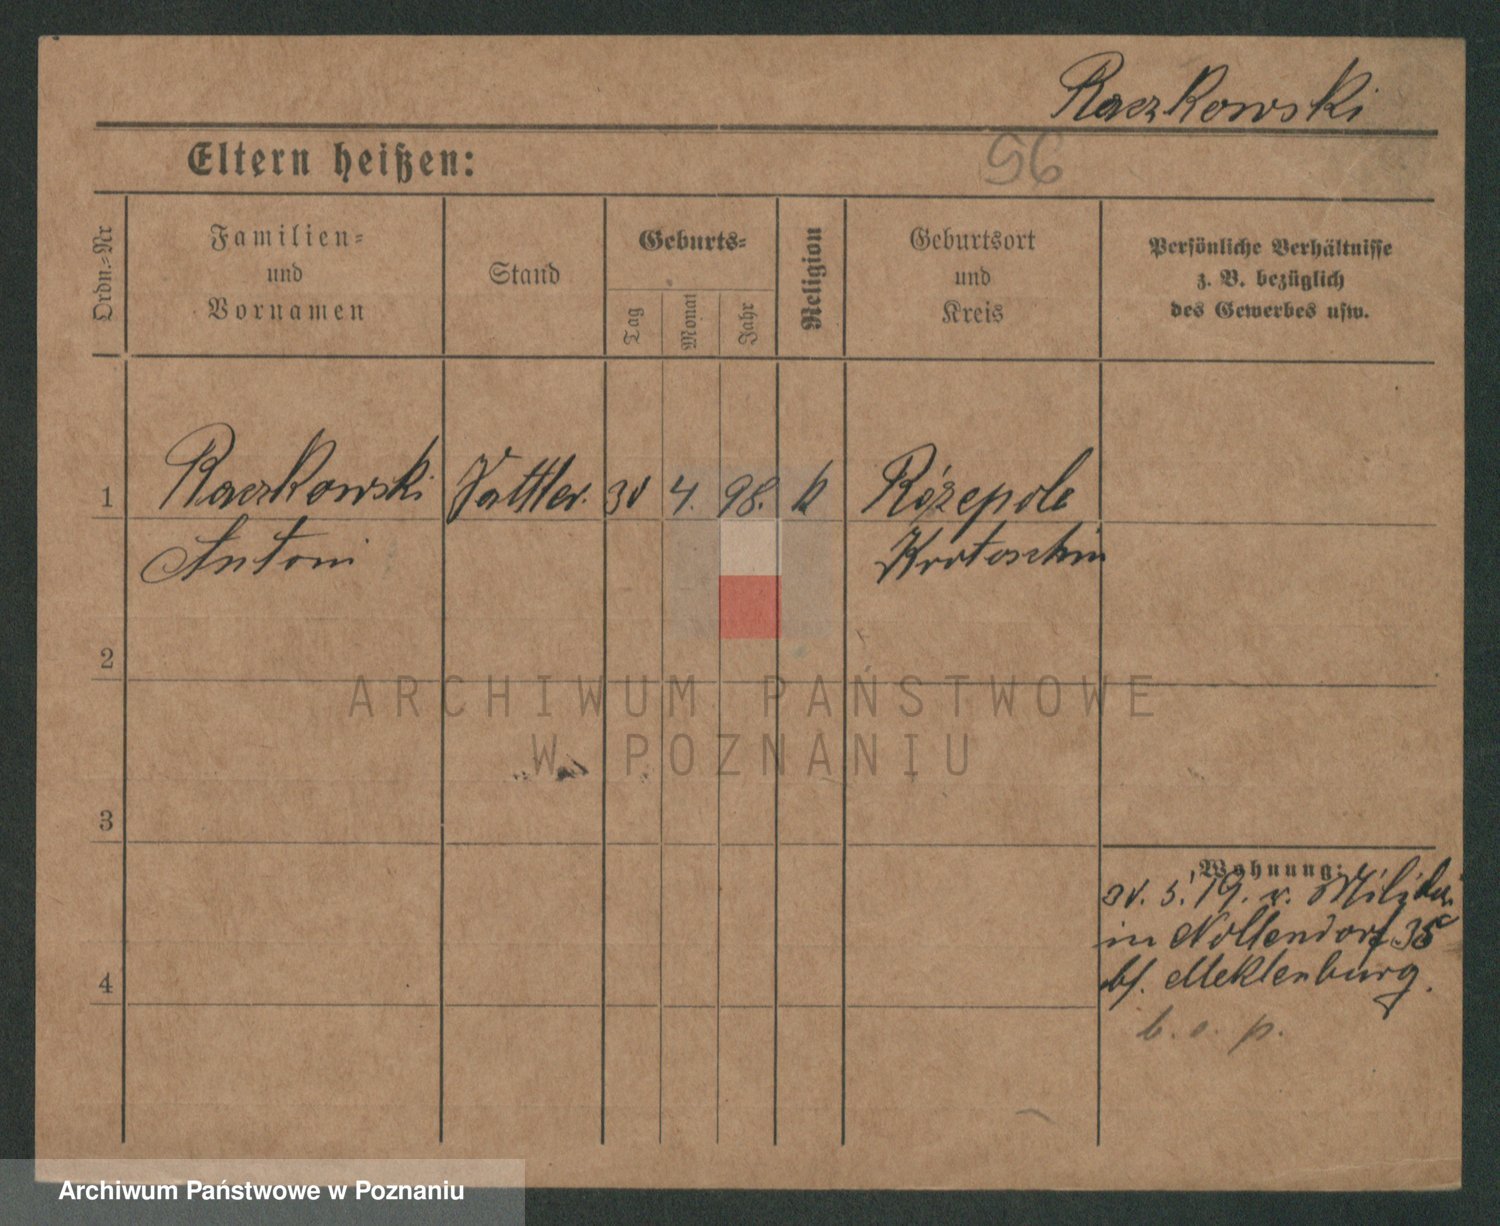 Raczkowski
Eltern heißen:
56
Ordn.-Nr
Familien-
und
Vornamen
Stand
Geburts-
Tag
Monat
Jahr
Religion
Geburtsort
und
Kreis
Persönliche Verhältnisse
z. B. bezüglich
des Gewerbes usw.
1
Raczkowski
Sattler.
30
4.
98.
k
Różepole
Antoni
Krotoschin
2
ARCHIWUM PAŃSTWOWE
W POZNANIU
3
Wohnung:
30. 5. 19. v. Militär
in Nollendorf 35
bf. Meklenburg.
4
b. s. p.
Archiwum Państwowe w Poznaniu